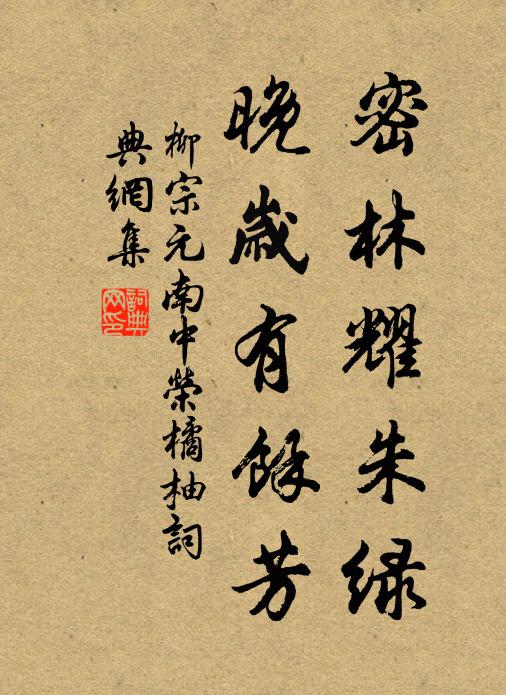 密林耀朱緑
晚歲有餘芳
柳宗元南中榮橘柚詞
典網集
詞典網印